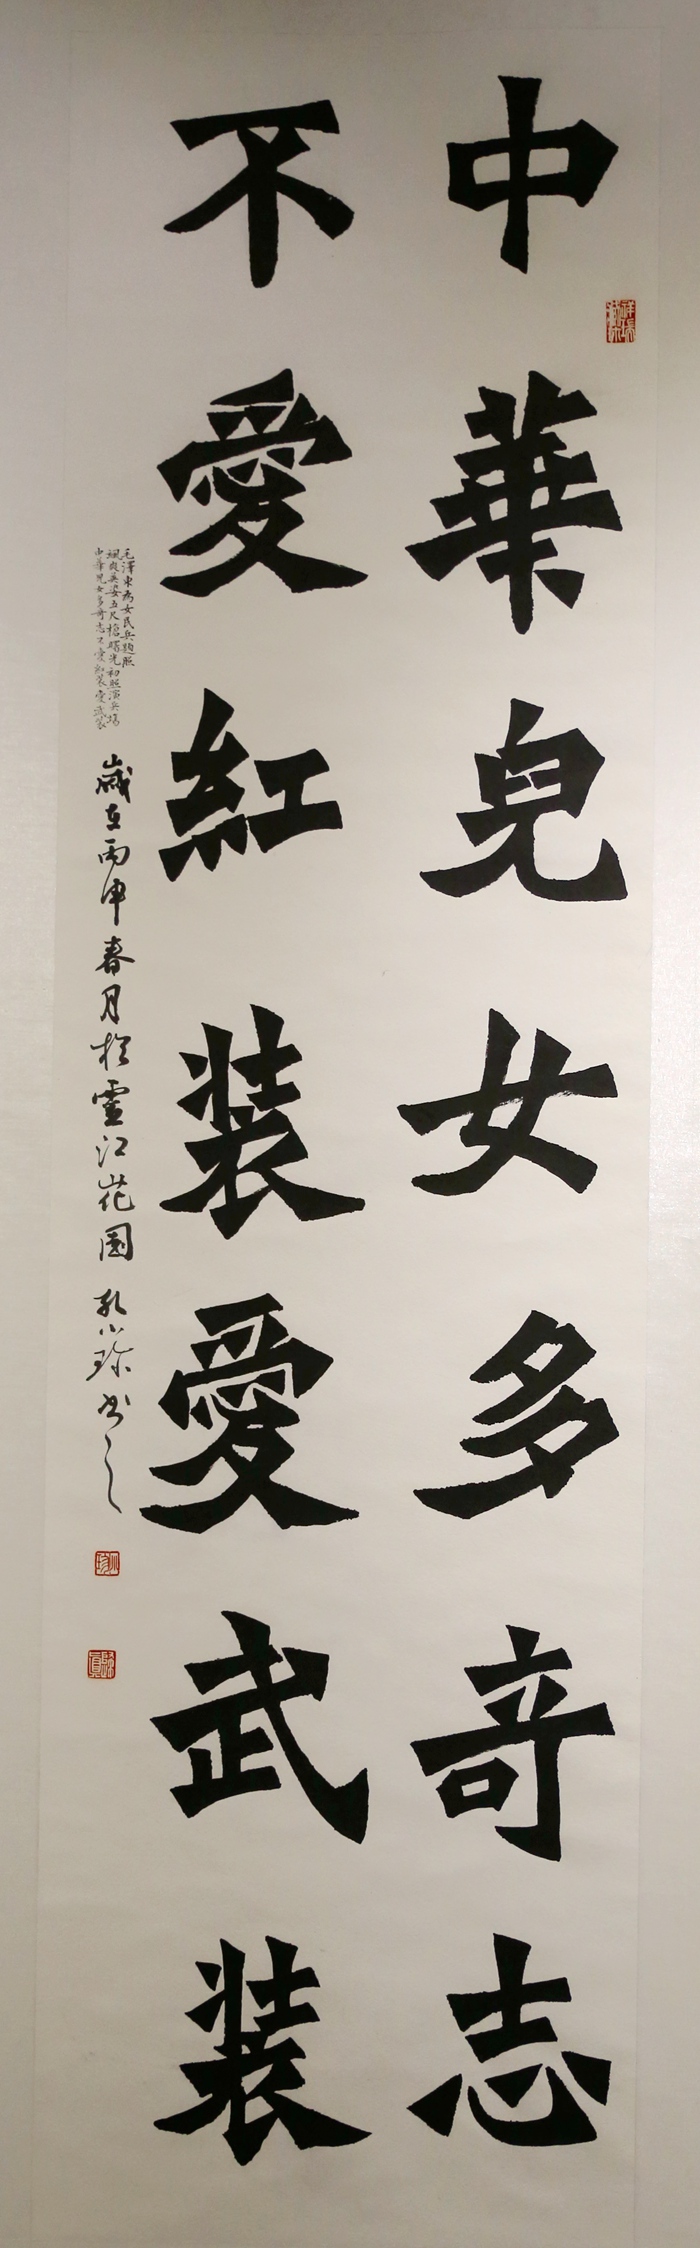 中華兒女多奇志
不愛紅裝愛武裝
毛澤東為女民兵題照
颯爽英姿五尺槍曙光初照演兵場
中華兒女多奇志不愛紅裝愛武裝
歲在丙申春月於靈江花園孔小珍書之